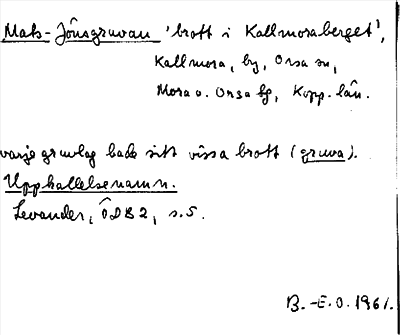 Mats-Jönsgruvan 'brott i Kallmoraberget',
Kallmora, by, Orsa sn,
Mora o. Orsa tg, Kopp. län.
varje gruvlag hade sitt vissa brott (gruva).
Uppkallelsenamn.
Levander, ÖDB 2, s. 5.
B.-E.O. 1961.